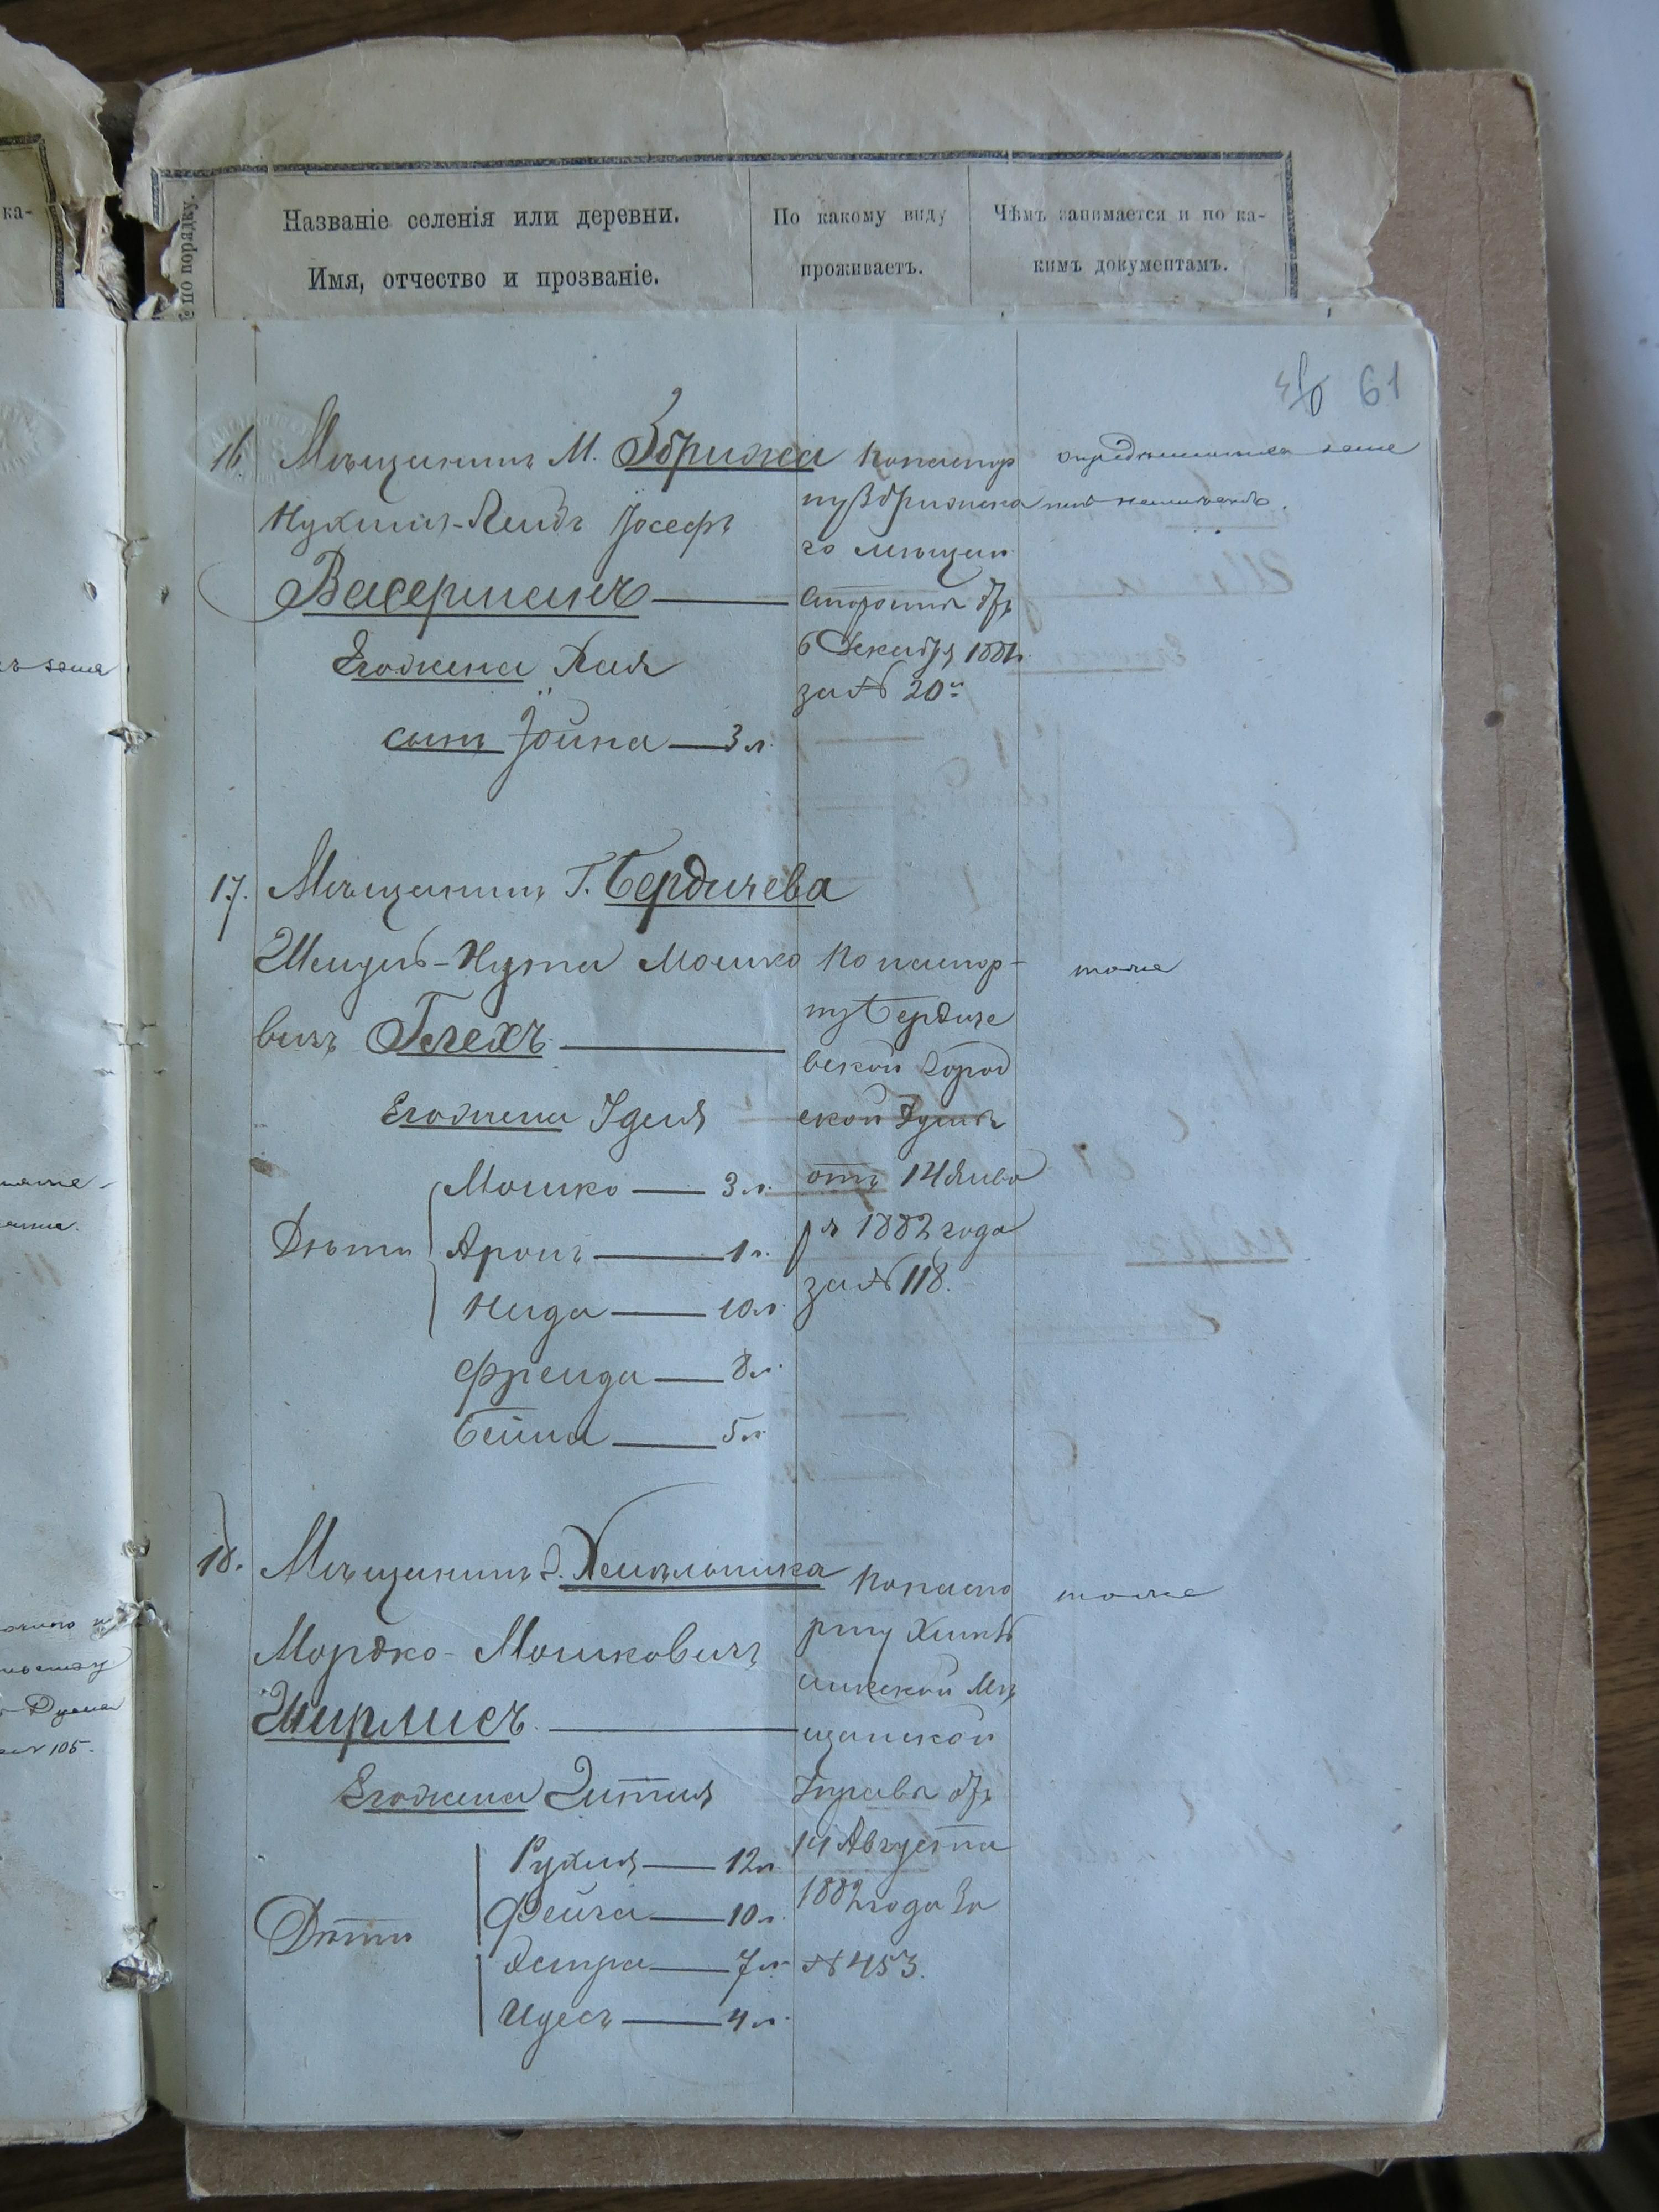 ка-
№ по порядку.
Названіе селенія или деревни.
Имя, отчество и прозваніе.
По какому виду
проживаетъ.
Чѣмъ занимается и по ка-
кимъ документамъ.
61
16. Мѣщанинъ М. Збрижа
Нухим-Лейбъ Іосефъ
Васерманъ
Его жена Хая
сынъ Іойна — 3 л.
По паспор
ту Збрижска
го мѣщан
старосты отъ
6 Декабря 1881 г.
за № 20
17. Мѣщанинъ Г. Бердичева
Шмуль-Нута Мошко
вичъ Блехъ
Его жена Идея
Дѣти
Мошко — 3 л.
Аронъ — 1 г.
Неида — 10 л.
Фрейда — 8 л.
Бейла — 5 л.
По паспор-
ту Бердиче
вской город
ской Думы
отъ 14 Янва
ря 1882 года
за № 118.
тоже
18. Мѣщанинъ г. Хмѣльника
Мордко-Мошковичъ
Ширмисъ
Его жена Этля
Дѣти
Рухля — 12 л.
Фейга — 10 л.
Эстра — 7 л.
Идесъ — 4 л.
По паспо
рту Хмѣль
никской Мѣ
щанской
Управы отъ
14 Августа
1882 года За
№ 453.
тоже
№ 105.